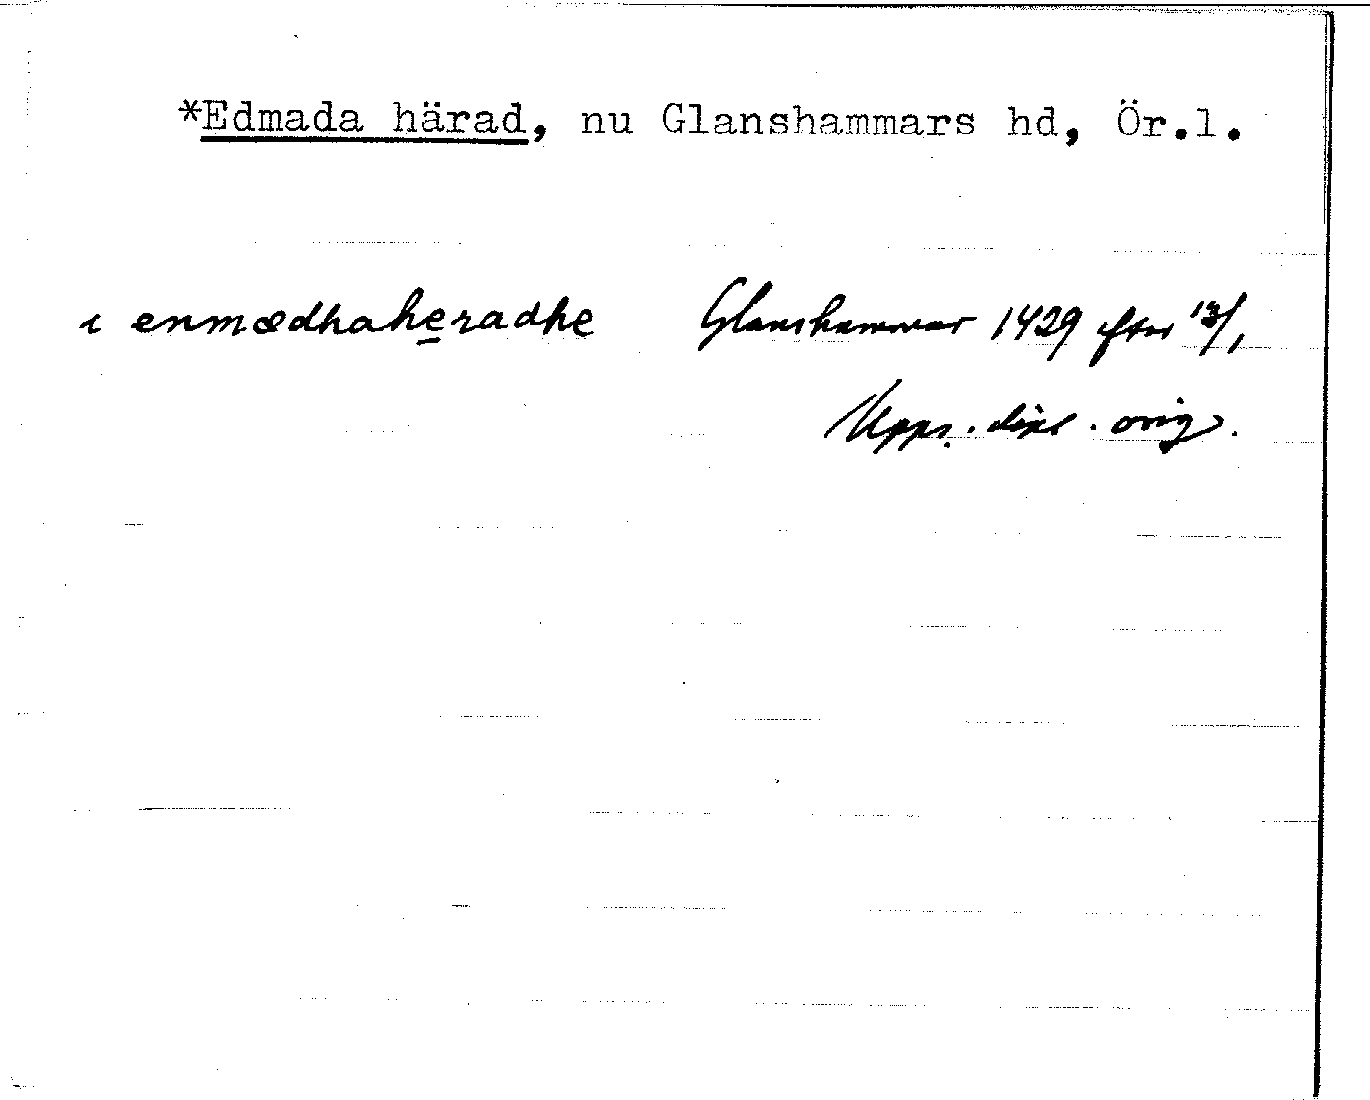 *Edmada härad, nu Glanshammars hd, Ör.l.
i enmædhaheradhe Glanshammar 1429 efter 13/1
Upps. dipl. orig.